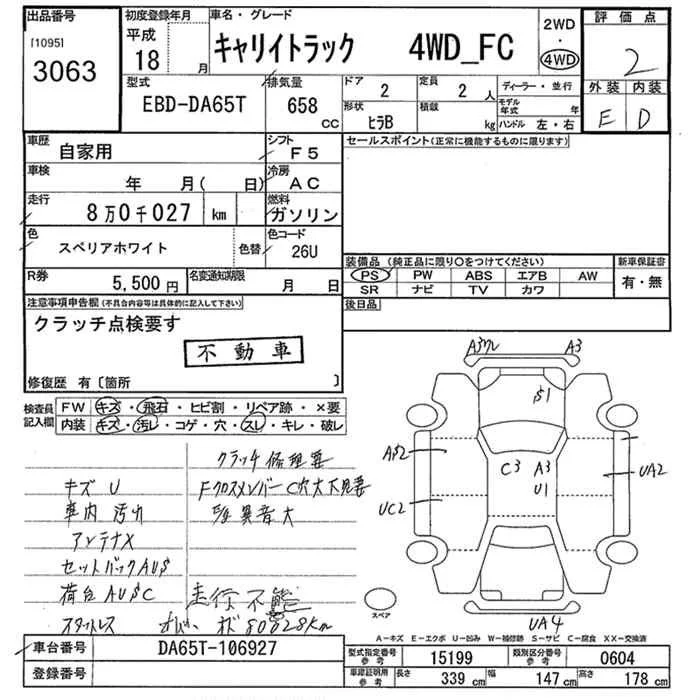 出品番号
[1095]
3063
初度登録年月
平成
18 月
車名・グレード
キャリイトラック 4WD_FC
2WD
・
4WD
評価点
2
外装 内装
E D
型式
EBD-DA65T
排気量
658
CC
ドア
2
定員
2 人
ディーラー・並行
形状
ヒラB
積載
kg
モデル年式 年
ハンドル 左・右
車歴
自家用
シフト
F5
車検
年 月( 日)
冷房
AC
走行
8万0千027 km
燃料
ガソリン
色
スペリアホワイト
色替
色コード
26U
R券
5,500円
名変通知期限
月 日
セールスポイント(正常に機能するものに限ります)
装備品 (純正品に限り○をつけてください)
新車保証書
PS PW ABS エアB AW
SR ナビ TV カワ
有・無
後日品
注意事項申告欄(不具合内容等は具体的に記入して下さい)
クラッチ点検要す
不動車
修復歴 有〔箇所 〕
検査員
記入欄
FW キズ・飛石・ヒビ割・リペア跡・×要
内装 キズ・汚レ・コゲ・穴・スレ・キレ・破レ
クラッチ修理要
キズ U
FクロスメンバーC穴大下見要
車内 汚れ
異音大
アンテナX
セットバックAUS
荷台 AUSC
走行不能
スタットレス
80028Km
A3 S1
AS2 C3 A3 U1 UA2
UC2
UA4
スペア
A－キズ E－エクボ U－凹み W－補修跡 S－サビ C－腐食 XX－交換済
車台番号
DA65T-106927
登録番号
型式指定番号
参考
15199
類別区分番号
参考
0604
車庫証明用
参考
長さ
339 cm
幅
147 cm
高さ
178 cm